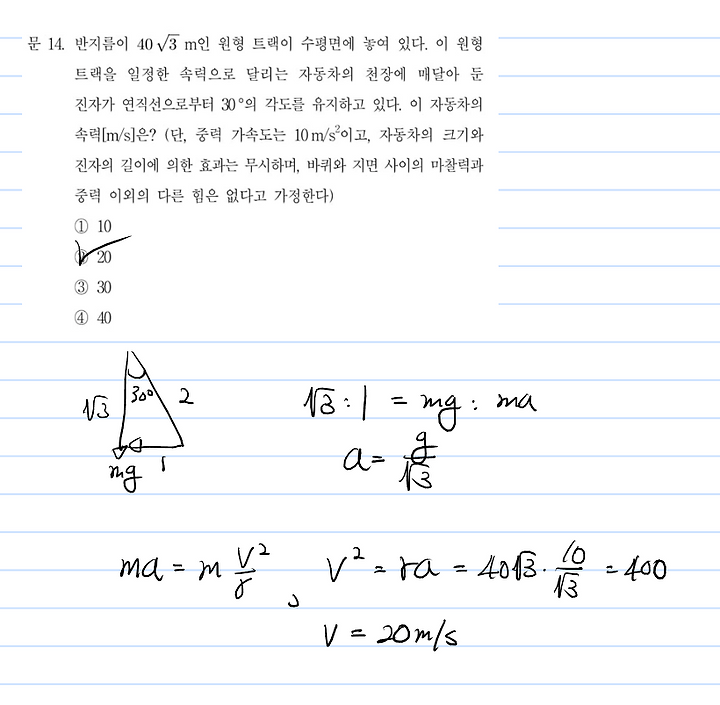 문 14. 반지름이 40√3 m인 원형 트랙이 수평면에 놓여 있다. 이 원형
트랙을 일정한 속력으로 달리는 자동차의 천장에 매달아 둔
진자가 연직선으로부터 30°의 각도를 유지하고 있다. 이 자동차의
속력[m/s]은? (단, 중력 가속도는 10 m/s²이고, 자동차의 크기와
진자의 길이에 의한 효과는 무시하며, 바퀴와 지면 사이의 마찰력과
중력 이외의 다른 힘은 없다고 가정한다)
① 10
② 20
③ 30
④ 40
√3 30° 2
mg 1
√3 : 1 = mg : ma
a = g/√3
ma = m v²/r , v² = ra = 40√3 · 10/√3 = 400
v = 20 m/s